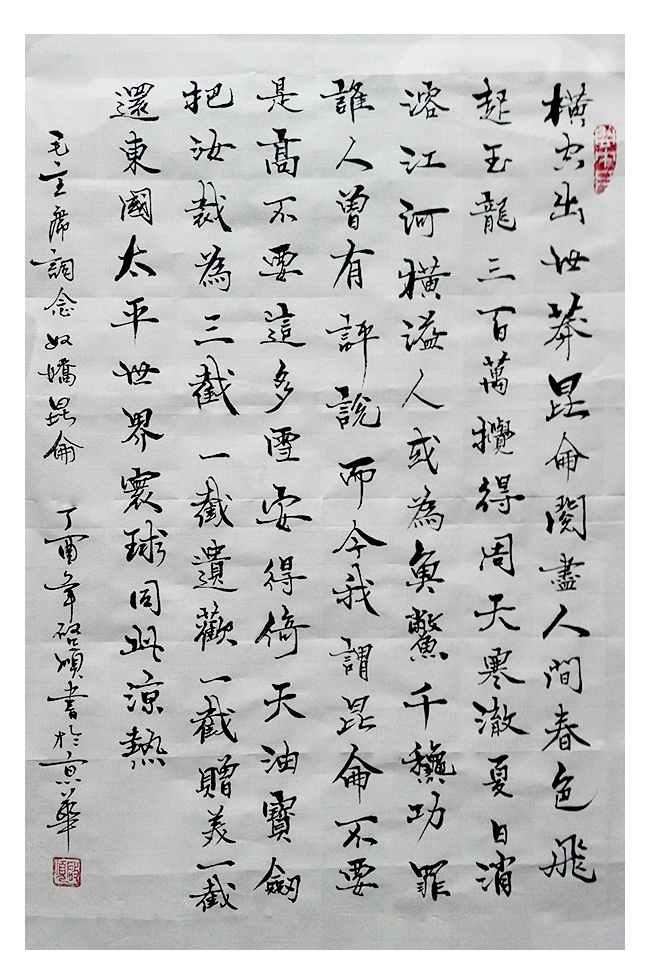 橫空出世莽昆侖閱盡人間春色飛
起玉龍三百萬攪得周天寒澈夏日消
溶江河橫溢人或為魚鱉千秋功罪
誰人曾有評說而今我謂昆侖不要
是高不要這多雪安得倚天油寶劍
把汝裁為三截一截遺歡一截贈美一截
還東國太平世界寰球同此涼熱
毛主席詞念奴嬌昆侖 丁酉年啓順書於京華